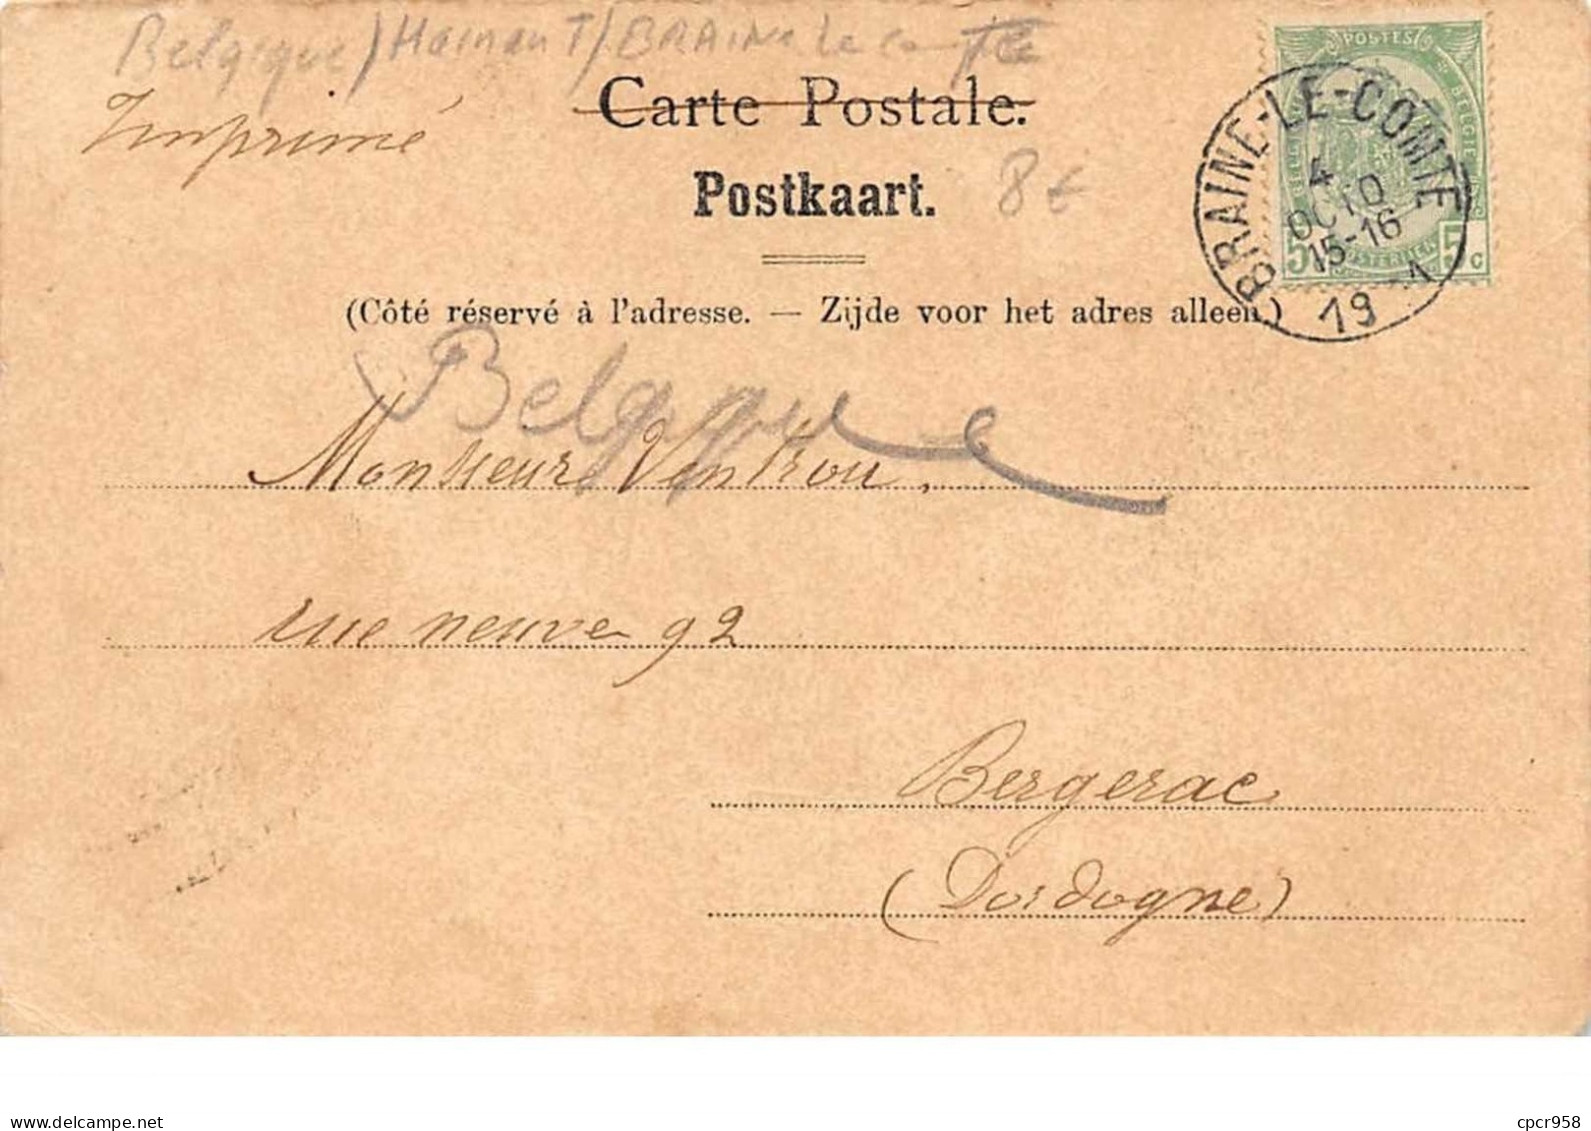 Belgique / Hainaut / BRAINE le comte
Imprimé
Carte Postale.
Postkaart.
8€
POSTES
BELGIE
BRAINE-LE-COMTE
4
OCTO
15-16
19
5 5 c
(Côté réservé à l'adresse. — Zijde voor het adres alleen)
Belgique
Monsieur Ventrou,
rue neuve 92
Bergerac
(Dordogne)
Delcampe.net
cpcr958